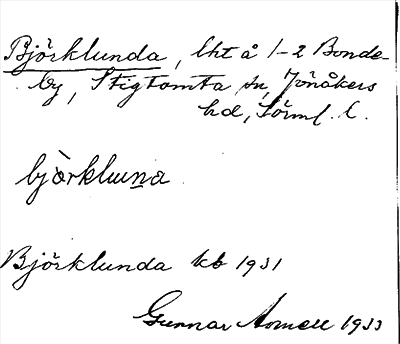 Björklunda, lht å 1-2 Bonde-
by, Stigtomta sn, Jönåkers
hd, Sörml. l.
bjö̀rkluṉa
Björklunda kb 1931
Gunnar Arnell 1933